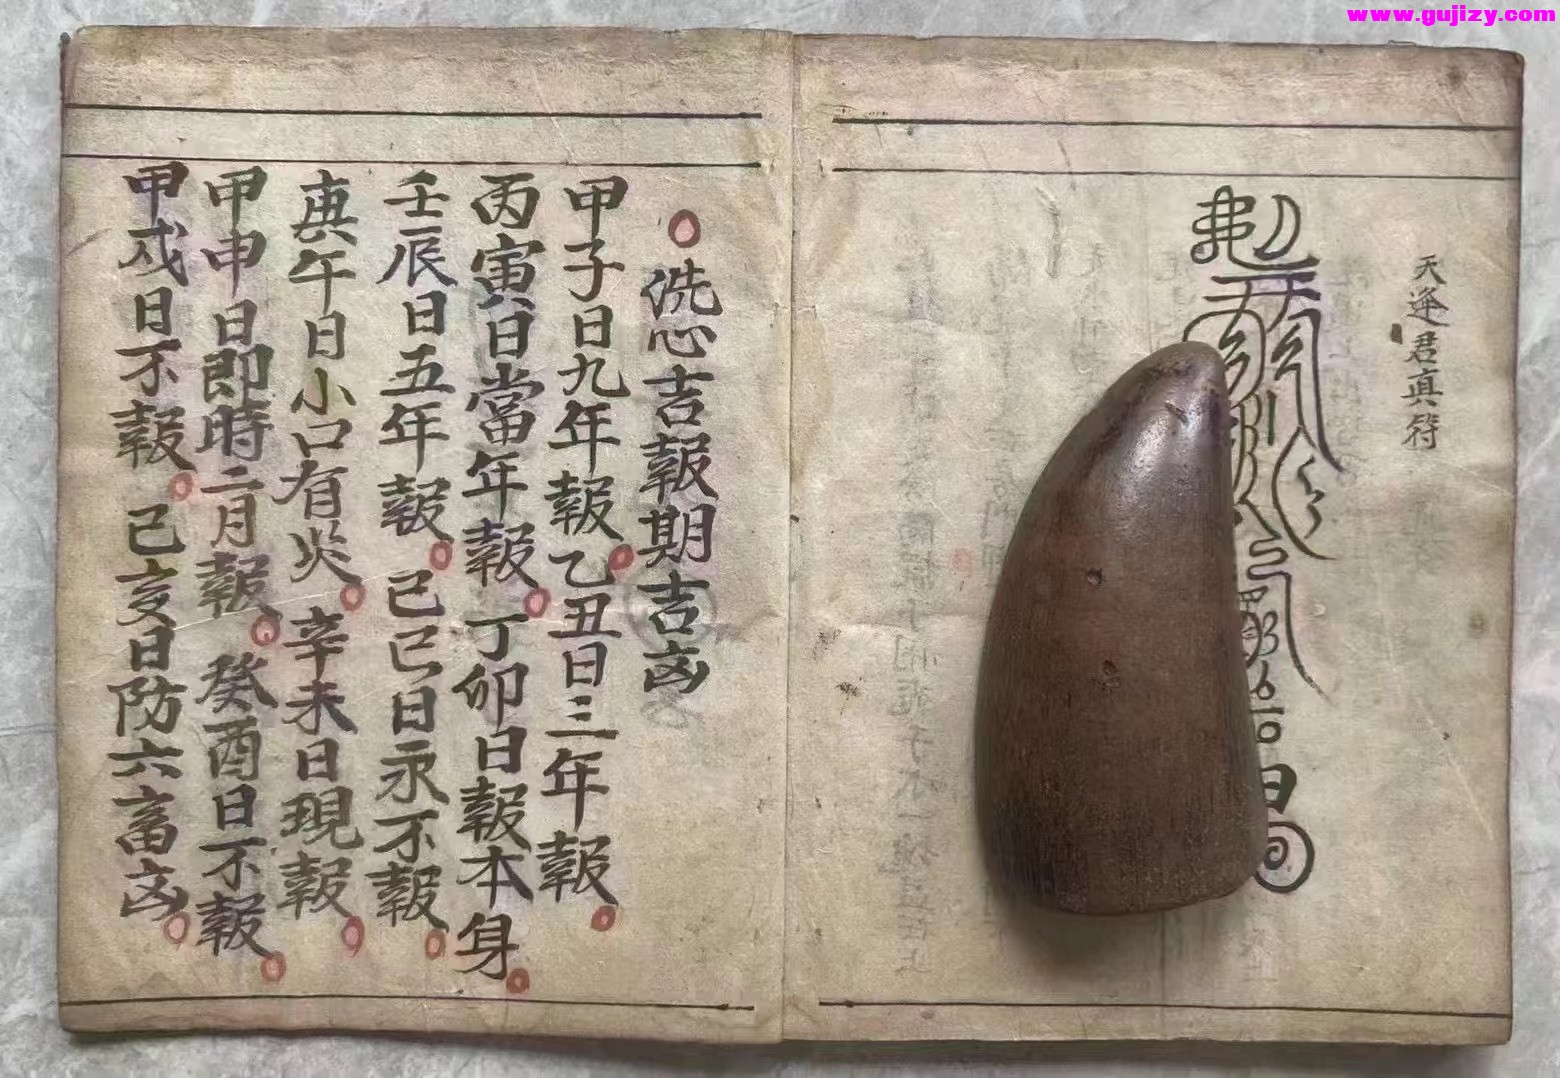 www.gujizy.com
天逢君真符
洗心吉報期吉凶
甲子日九年報乙丑日三年報
丙寅日當年報丁卯日報本身
壬辰日五年報己巳日永不報
庚午日小口有災辛未日現報
甲申日即時二月報癸酉日不報
甲戌日不報己亥日防六畜凶